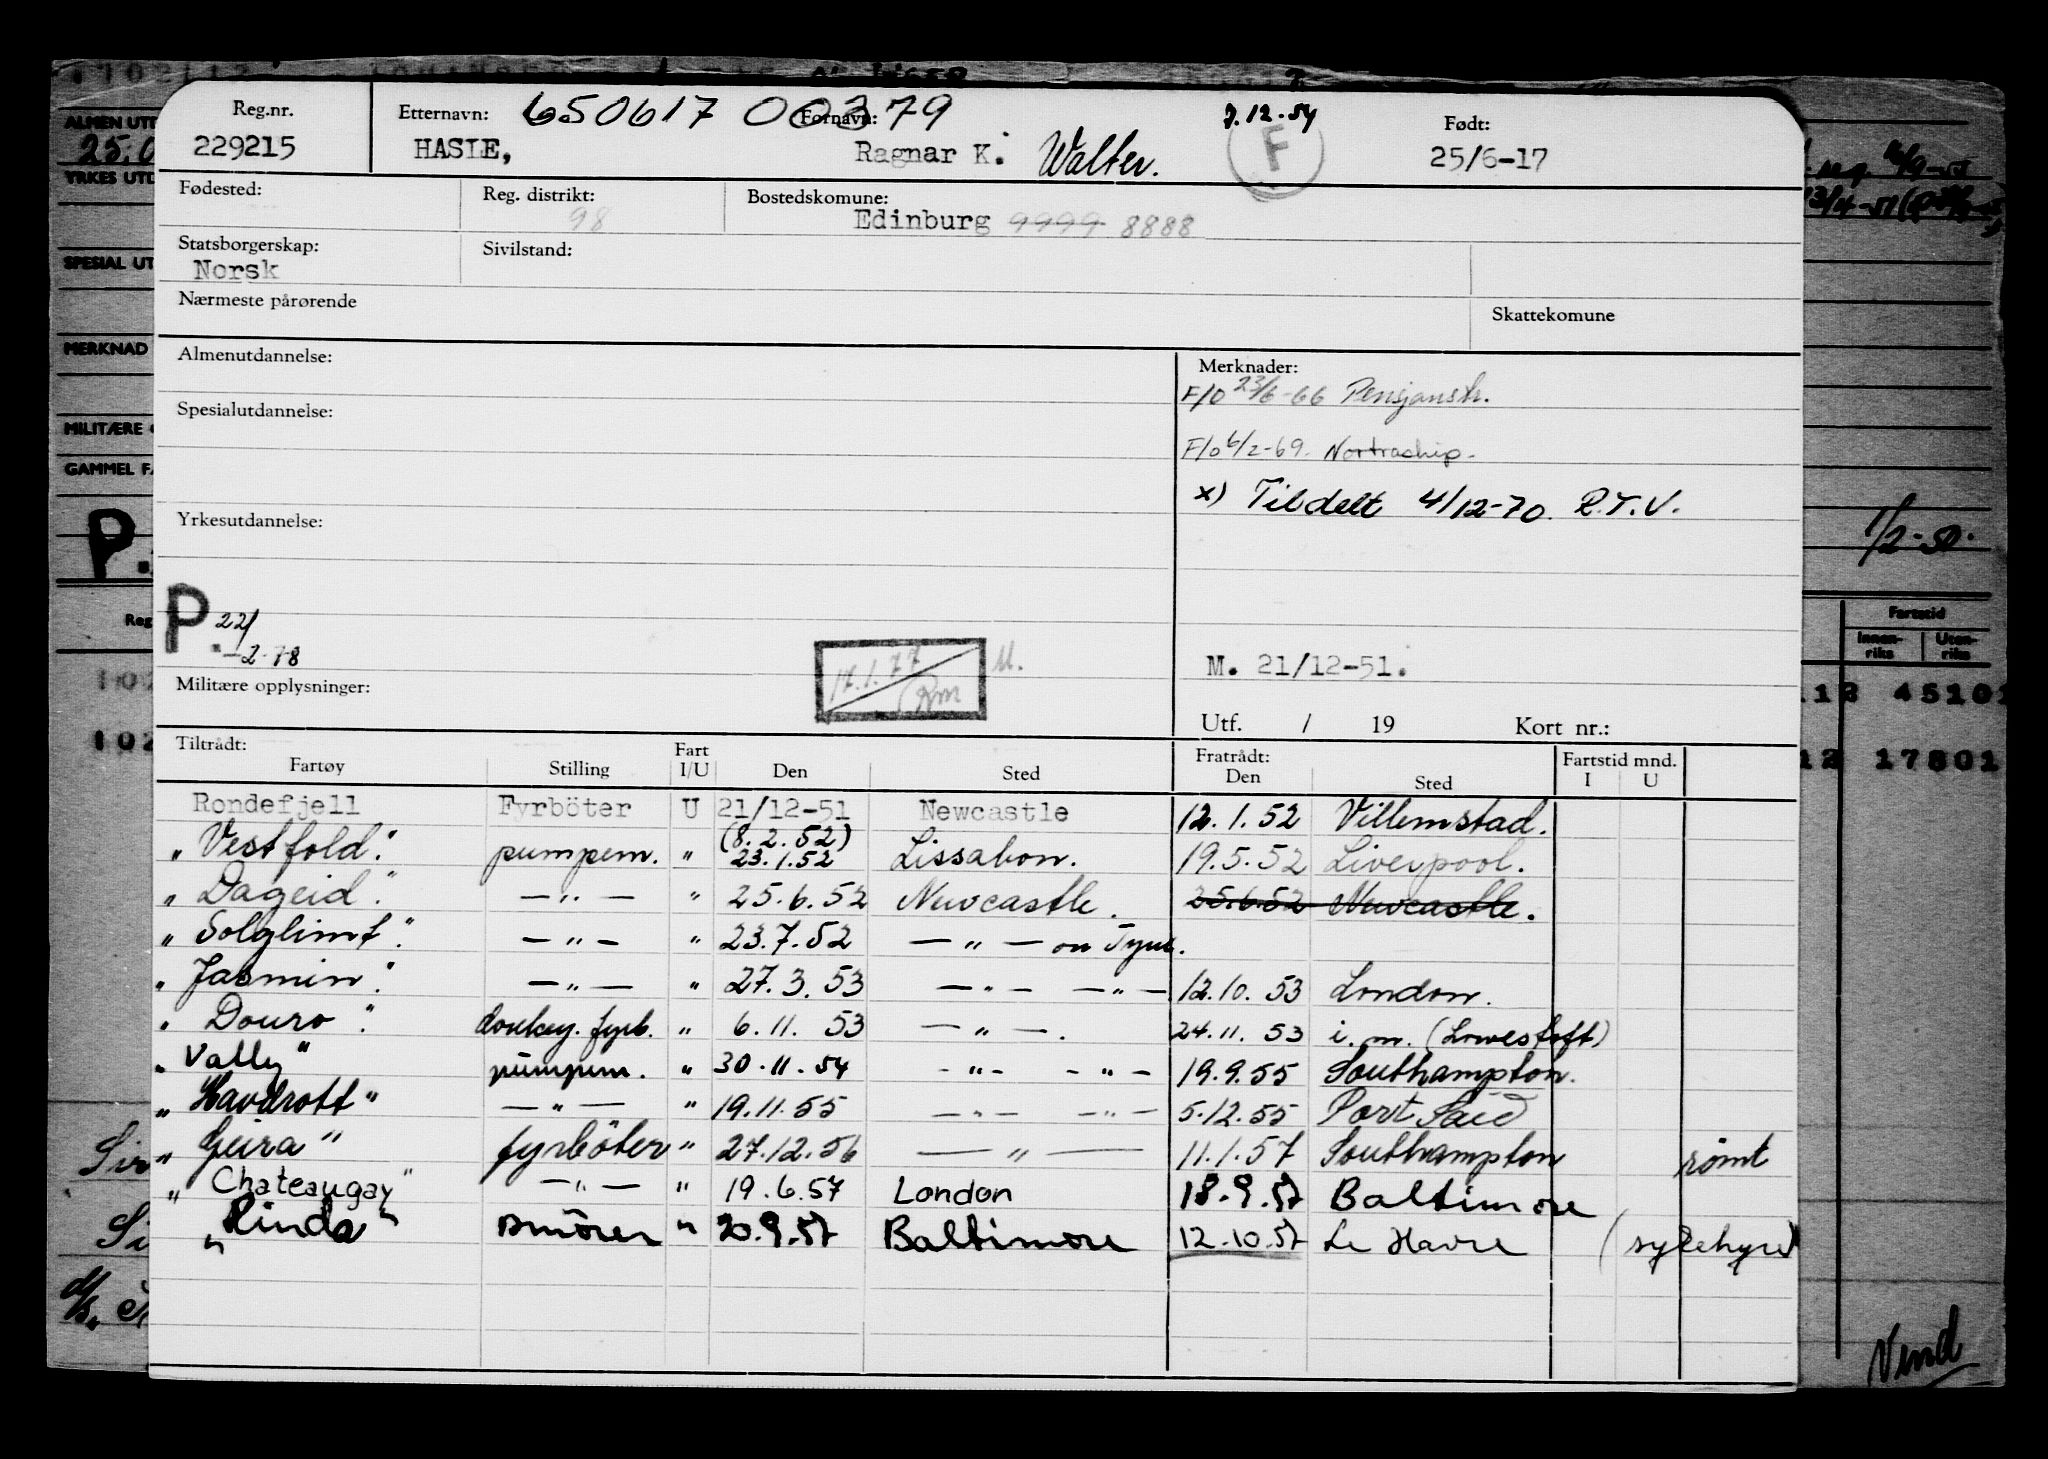 Reg.nr. Etternavn: 650617 00379 Fornavn: 7.12.54 Født:
229215 HASLE, Ragnar K. Walter. F 25/6-17
Fødested: Reg. distrikt: Bostedskomune:
98 Edinburg 9999 8888
Statsborgerskap: Sivilstand:
Norsk
Nærmeste pårørende Skattekomune
Almenutdannelse: Merknader:
F/O 23/6-66 Pensjonstr.
Spesialutdannelse:
F/o 6/2-69. Nortraship.
x) Tildelt 4/12-70. R.T.V.
Yrkesutdannelse:
P. 22/
-2-78
17.1.77 M.
M. 21/12-51.
Militære opplysninger:
Utf. / 19 Kort nr.:
Tiltrådt: Fratrådt:
Fartøy Stilling Fart I/U Den Sted Den Sted Fartstid mnd. I U
Rondefjell Fyrböter U 21/12-51 Newcastle 12.1.52 Villemstad.
(8.2.52)
" Vestfold". pumpem. " 23.1.52 Lissabon. 19.5.52 Liverpool.
" Dageid". — " — " 25.6.52 Newcastle. 25.6.52 Newcastle.
" Solglimt". — " — " 23.7.52 — " — on Tyne.
" Jasmin". — " — " 27.3.53 — " — — " — 12.10.53 London.
" Douro". donkey. fyrb. " 6.11.53 — " —. 24.11.53 i.m. (Lowestoft)
" Vally" pumpem. " 30.11.54 — " — — " — 19.9.55 Southampton.
" Havdrott" — " — " 19.11.55 — " — — " — 5.12.55 Port Said
" Geira" fyrböter " 27.12.56 — " — 11.1.57 Southampton rømt
" Chateaugay" — " — " 19.6.57 London 18.9.57 Baltimore
" Rinda" smörer " 20.9.57 Baltimore 12.10.57 Le Havre (sykehyre)
ALMEN UTD
YRKES UTD
SPESIAL UT
MERKNAD
MILITÆRE
GAMMEL FA
P.
Reg
1/2-50.
Fartstid
Innen-riks Uten-riks
45101
17801